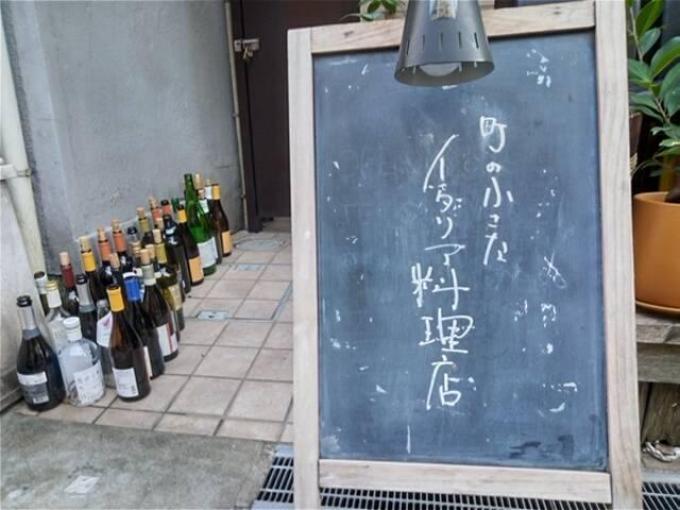 町の小さな
イタリア料理店